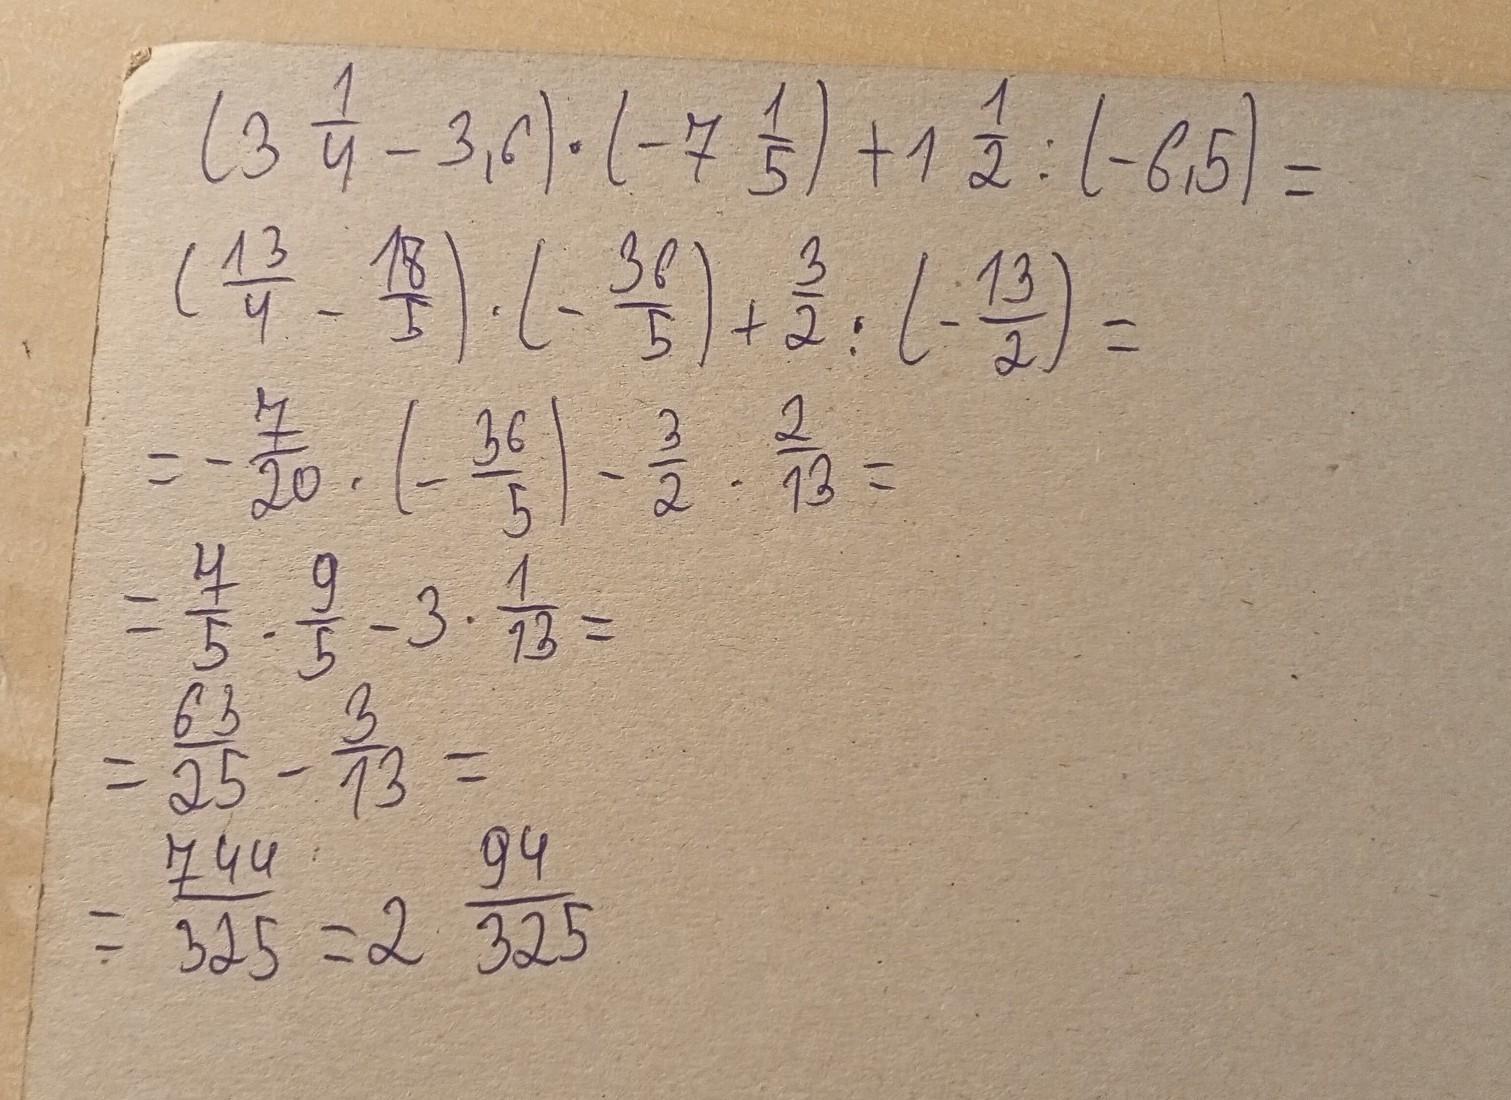 (3 1/4 - 3,6) · (-7 1/5) + 1 1/2 : (-6,5) =
(13/4 - 18/5) · (- 36/5) + 3/2 : (- 13/2) =
= - 7/20 · (- 36/5) - 3/2 · 2/13 =
= 7/5 · 9/5 - 3 · 1/13 =
= 63/25 - 3/13 =
= 744/325 = 2 94/325